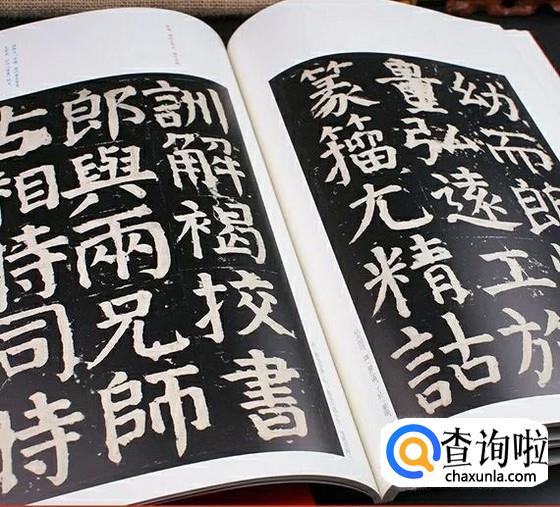 幼而
量弘遠工於
篆籀尤精詁
訓解褐挍書
郎與兩兄師
古相時同時
查询啦
chaxunla.com